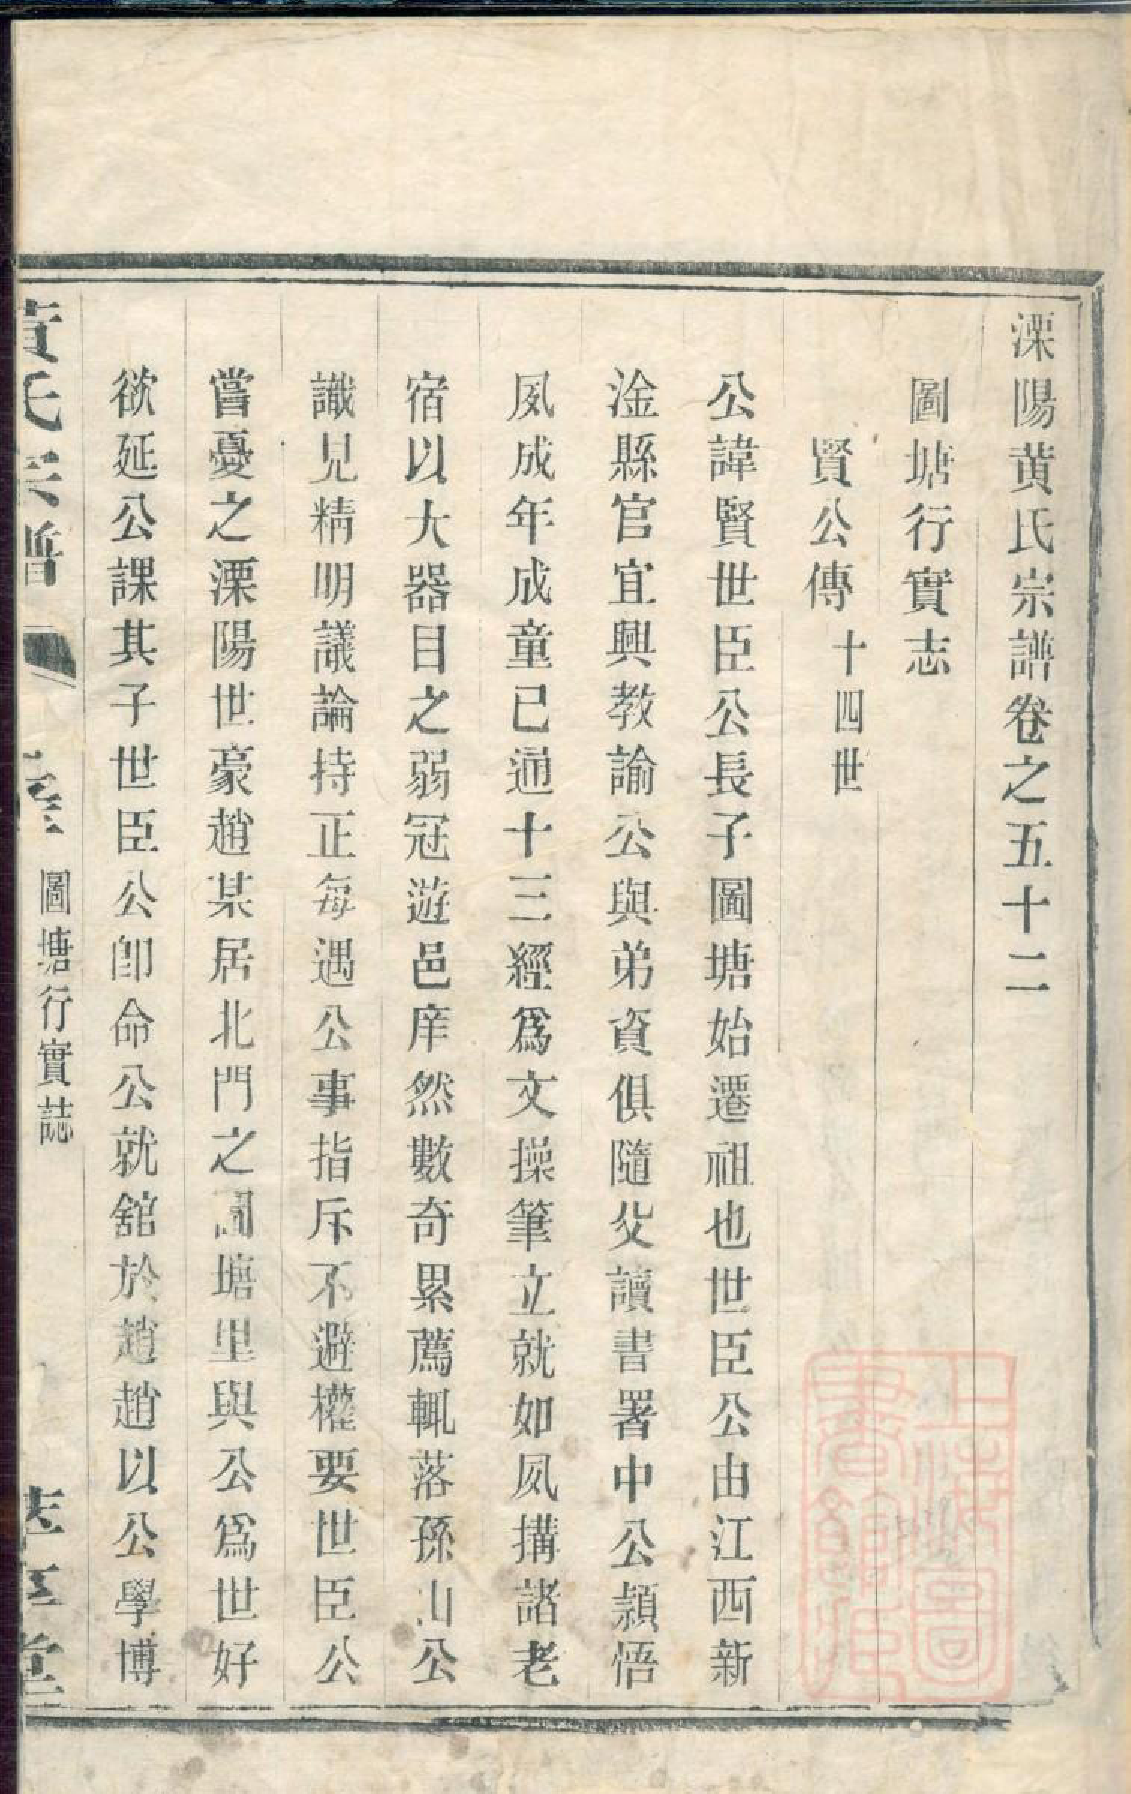 溧陽黄氏宗譜卷之五十二
圖塘行實志
賢公傳 十四世
公諱賢世臣公長子圖塘始遷祖也世臣公由江西新
淦縣官宜興教諭公與弟資俱隨父讀書署中公頴悟
夙成年成童已通十三經爲文操筆立就如夙搆諸老
宿以大器目之弱冠遊邑庠然數奇累薦輒落孫山公
識見精明議論持正每遇公事指斥不避權要世臣公
嘗憂之溧陽世豪趙某居北門之圖塘里與公爲世好
欲延公課其子世臣公卽命公就舘於趙趙以公學博
黃氏宗譜
圖塘行實誌
上海圖書館藏